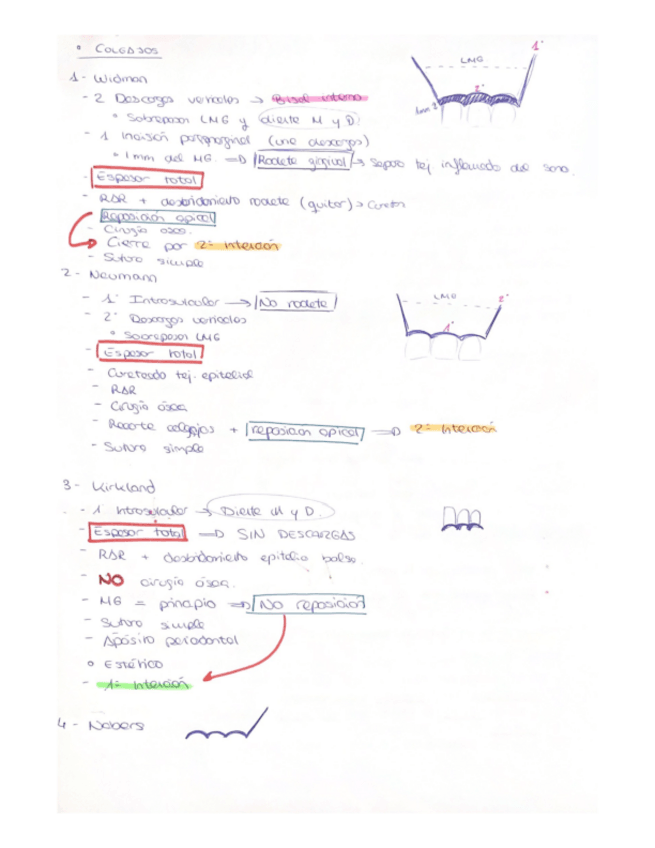 • COLGAJOS
1 - Widman
- 2 Descargas verticales → Bisel interno
° Sobrepasar LMG y diente M y D.
- 1 Incisión paramarginal (une descargas)
° 1mm del MG. ⇒ Rodete gingival → Separo tej inflamado del sano.
- Espesor total
- RAR + desbridamiento rodete (quitar) → Cureta
Reposición apical
- Cirugía ósea.
- Cierre por 2ª intención
- Sutura simple
LMG
1°
2°
1mm
2 - Neumann
- 1° Intrasulcular → No rodete
- 2° Descargas verticales
° Sobrepasar LMG
- Espesor total
- Curetado tej. epitelial
- RAR
- Cirugía ósea
- Recorte colgajos + reposición apical ⇒ 2ª intención
- Sutura simple
LMG
2°
1°
3 - Kirkland
- 1 Intrasulcular → Diente M y D.
- Espesor total ⇒ SIN DESCARGAS
- RAR + desbridamiento epitelio bolsa.
- NO cirugía ósea.
- MG = principio ⇒ No reposición
- Sutura simple
- Apósito periodontal
° Estético
- 1ª Intención
4 - Nabers